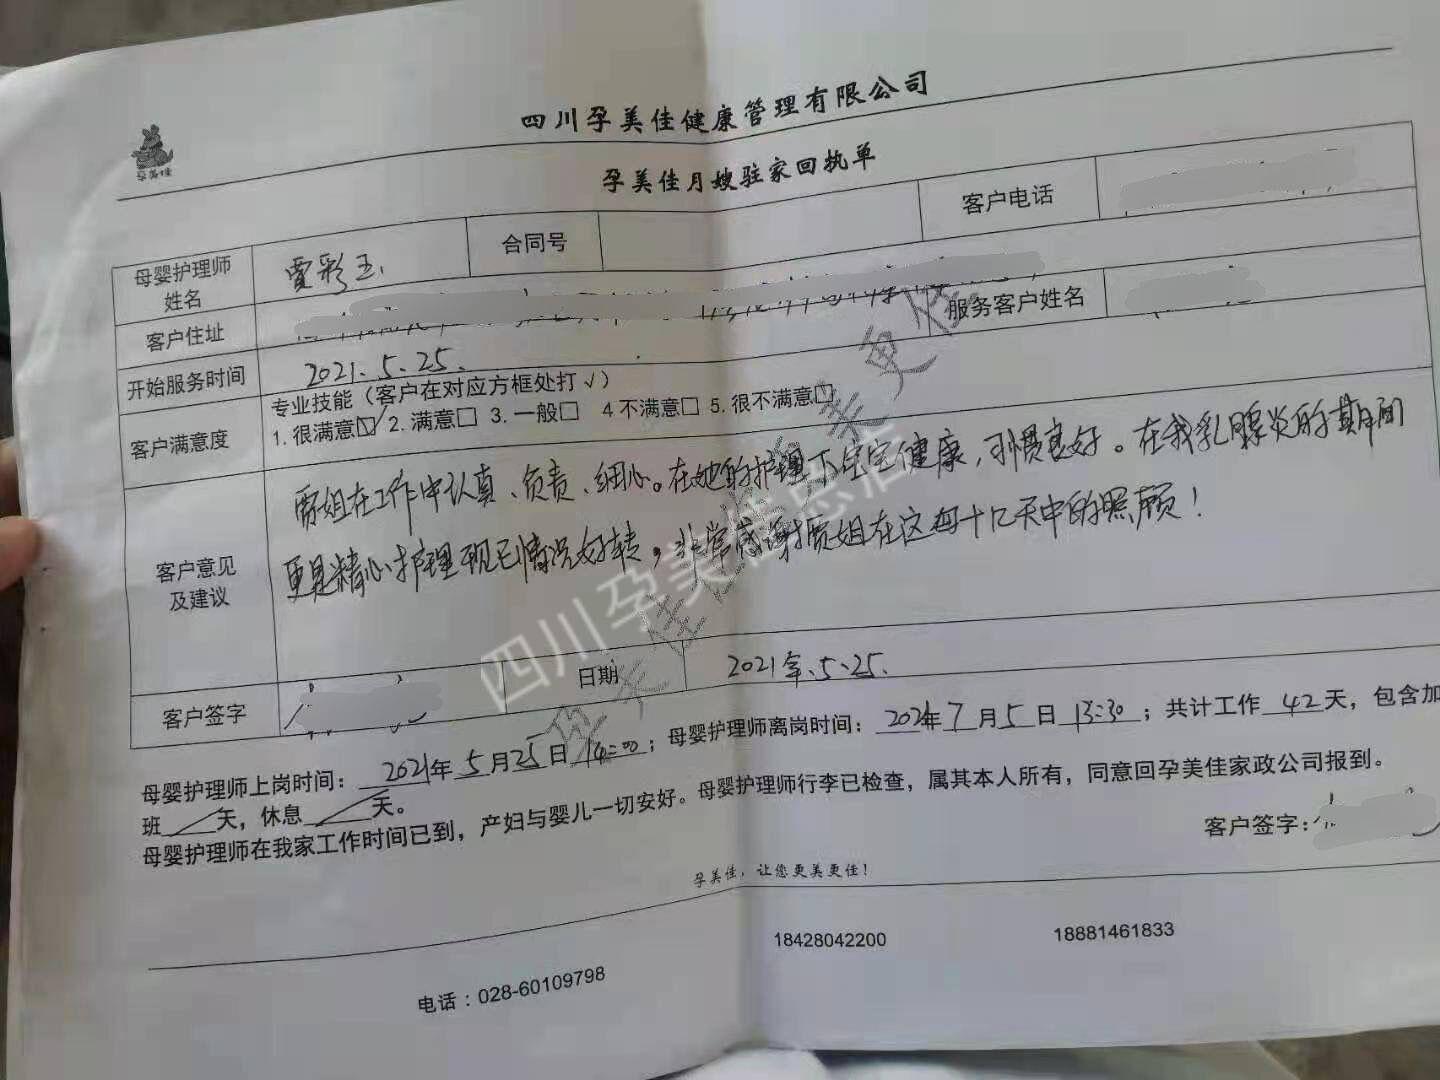 四川孕美佳健康管理有限公司
孕美佳
孕美佳月嫂驻家回执单
母婴护理师姓名 贾彩玉 合同号 客户电话
客户住址 服务客户姓名
开始服务时间 2021.5.25.
客户满意度 专业技能（客户在对应方框处打√）
1.很满意☑ 2.满意□ 3.一般□ 4不满意□ 5.很不满意□
客户意见及建议
贾姐在工作中认真、负责、细心。在她的护理下宝宝健康，习惯良好。在我乳腺炎的期间
更是精心护理现已情况好转，非常感谢贾姐在这四十几天中的照顾！
客户签字 日期 2021年.5.25.
母婴护理师上岗时间：2021年5月25日14:00；母婴护理师离岗时间：2021年7月5日13:30；共计工作42天，包含加
班 天，休息 天。
母婴护理师在我家工作时间已到，产妇与婴儿一切安好。母婴护理师行李已检查，属其本人所有，同意回孕美佳家政公司报到。
客户签字：
孕美佳，让您更美更佳！
电话：028-60109798 18428042200 18881461833
四川孕美佳总店